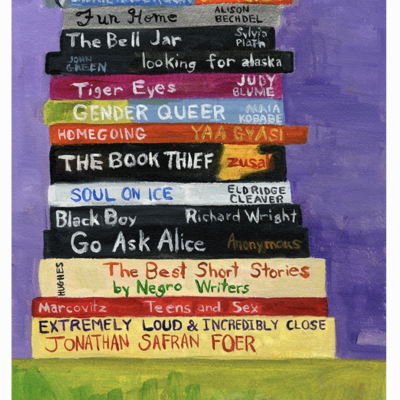 Fun Home ALISON BECHDEL
The Bell Jar Sylvia Plath
JOHN GREEN looking for alaska
Tiger Eyes JUDY BLUME
GENDER QUEER MAIA KOBABE
HOMEGOING YAA GYASI
THE BOOK THIEF zusak
SOUL ON ICE ELDRIDGE CLEAVER
Black Boy Richard Wright
Go Ask Alice Anonymous
HUGHES The Best Short Stories
by Negro Writers
Marcovitz Teens and Sex
EXTREMELY LOUD & INCREDIBLY CLOSE
JONATHAN SAFRAN FOER